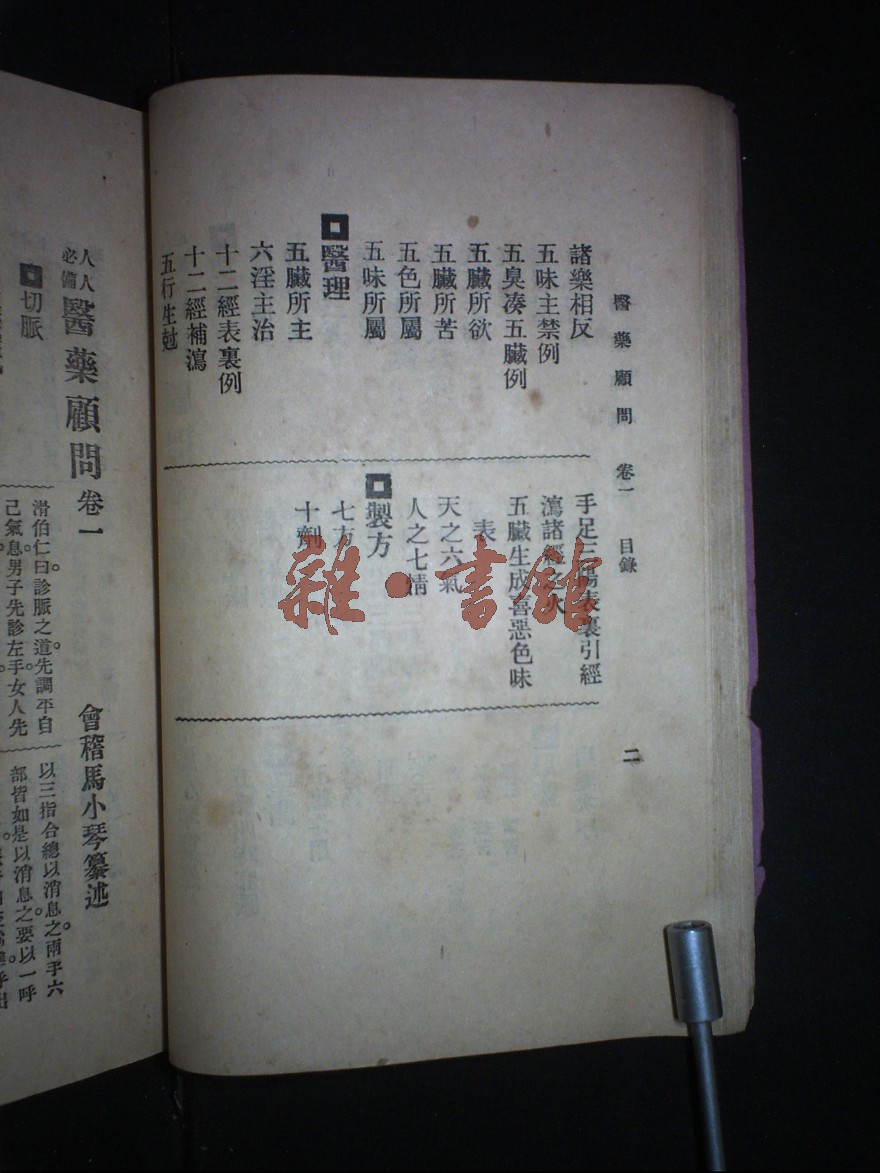 醫藥顧問 卷一 目錄 二
諸樂相反
五味主禁例
五臭凑五臟例
五臟所欲
五臟所苦
五色所屬
五味所屬
醫理
五臟所主
六淫主治
十二經表裏例
十二經補瀉
五行生尅
手足三陽表裏引經
瀉諸經之火
五臟生成喜惡色味
表
天之六氣
人之七情
製方
七方
十劑
雜·書館
人人必備 醫藥顧問 卷一 會稽馬小琴纂述
切脈
滑伯仁曰診脈之道。先調平自
己氣息。男子先診左手。女人先
以三指合總以消息之。兩手六
部皆如是。以消息之要以一呼